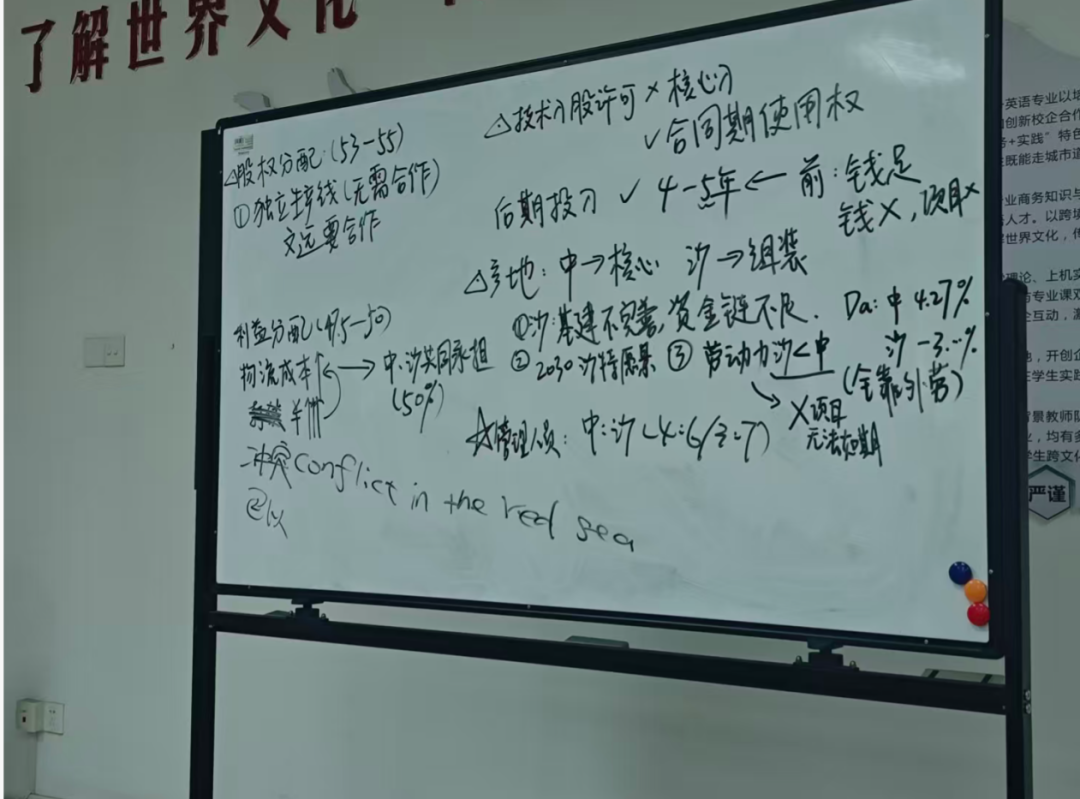 了解世界文化
△股权分配:(53-55)
①独立生产线(无需合作)
文远要合作
利益分配(475-50)
物流成本 → 中、沙共同承担
(50%)
半册
冲突 conflict in the red sea
②以
△技术入股许可 × 核心刀
✓合同期使用权
后期投入 ✓ 4-5年 ← 前:钱足
钱×,项目×
△产地:中→核心 沙→组装
①沙:基建不完善,资金链不足.
②2030沙特愿景 ③劳动力沙<中
Da:中 4.27%
沙 -3.…%
(全靠外劳)
→ ×项目
无法如期
☆管理人员:中:沙(4:6/3:7)
英语专业以
创新校企合作
+实践”特色
既能走城市道
业商务知识与
人才。以跨境
世界文化,传
理论、上机实
专业课双
互动,
地,开创企
学生实践
景教师队
业,均有多
学生跨文化
严谨